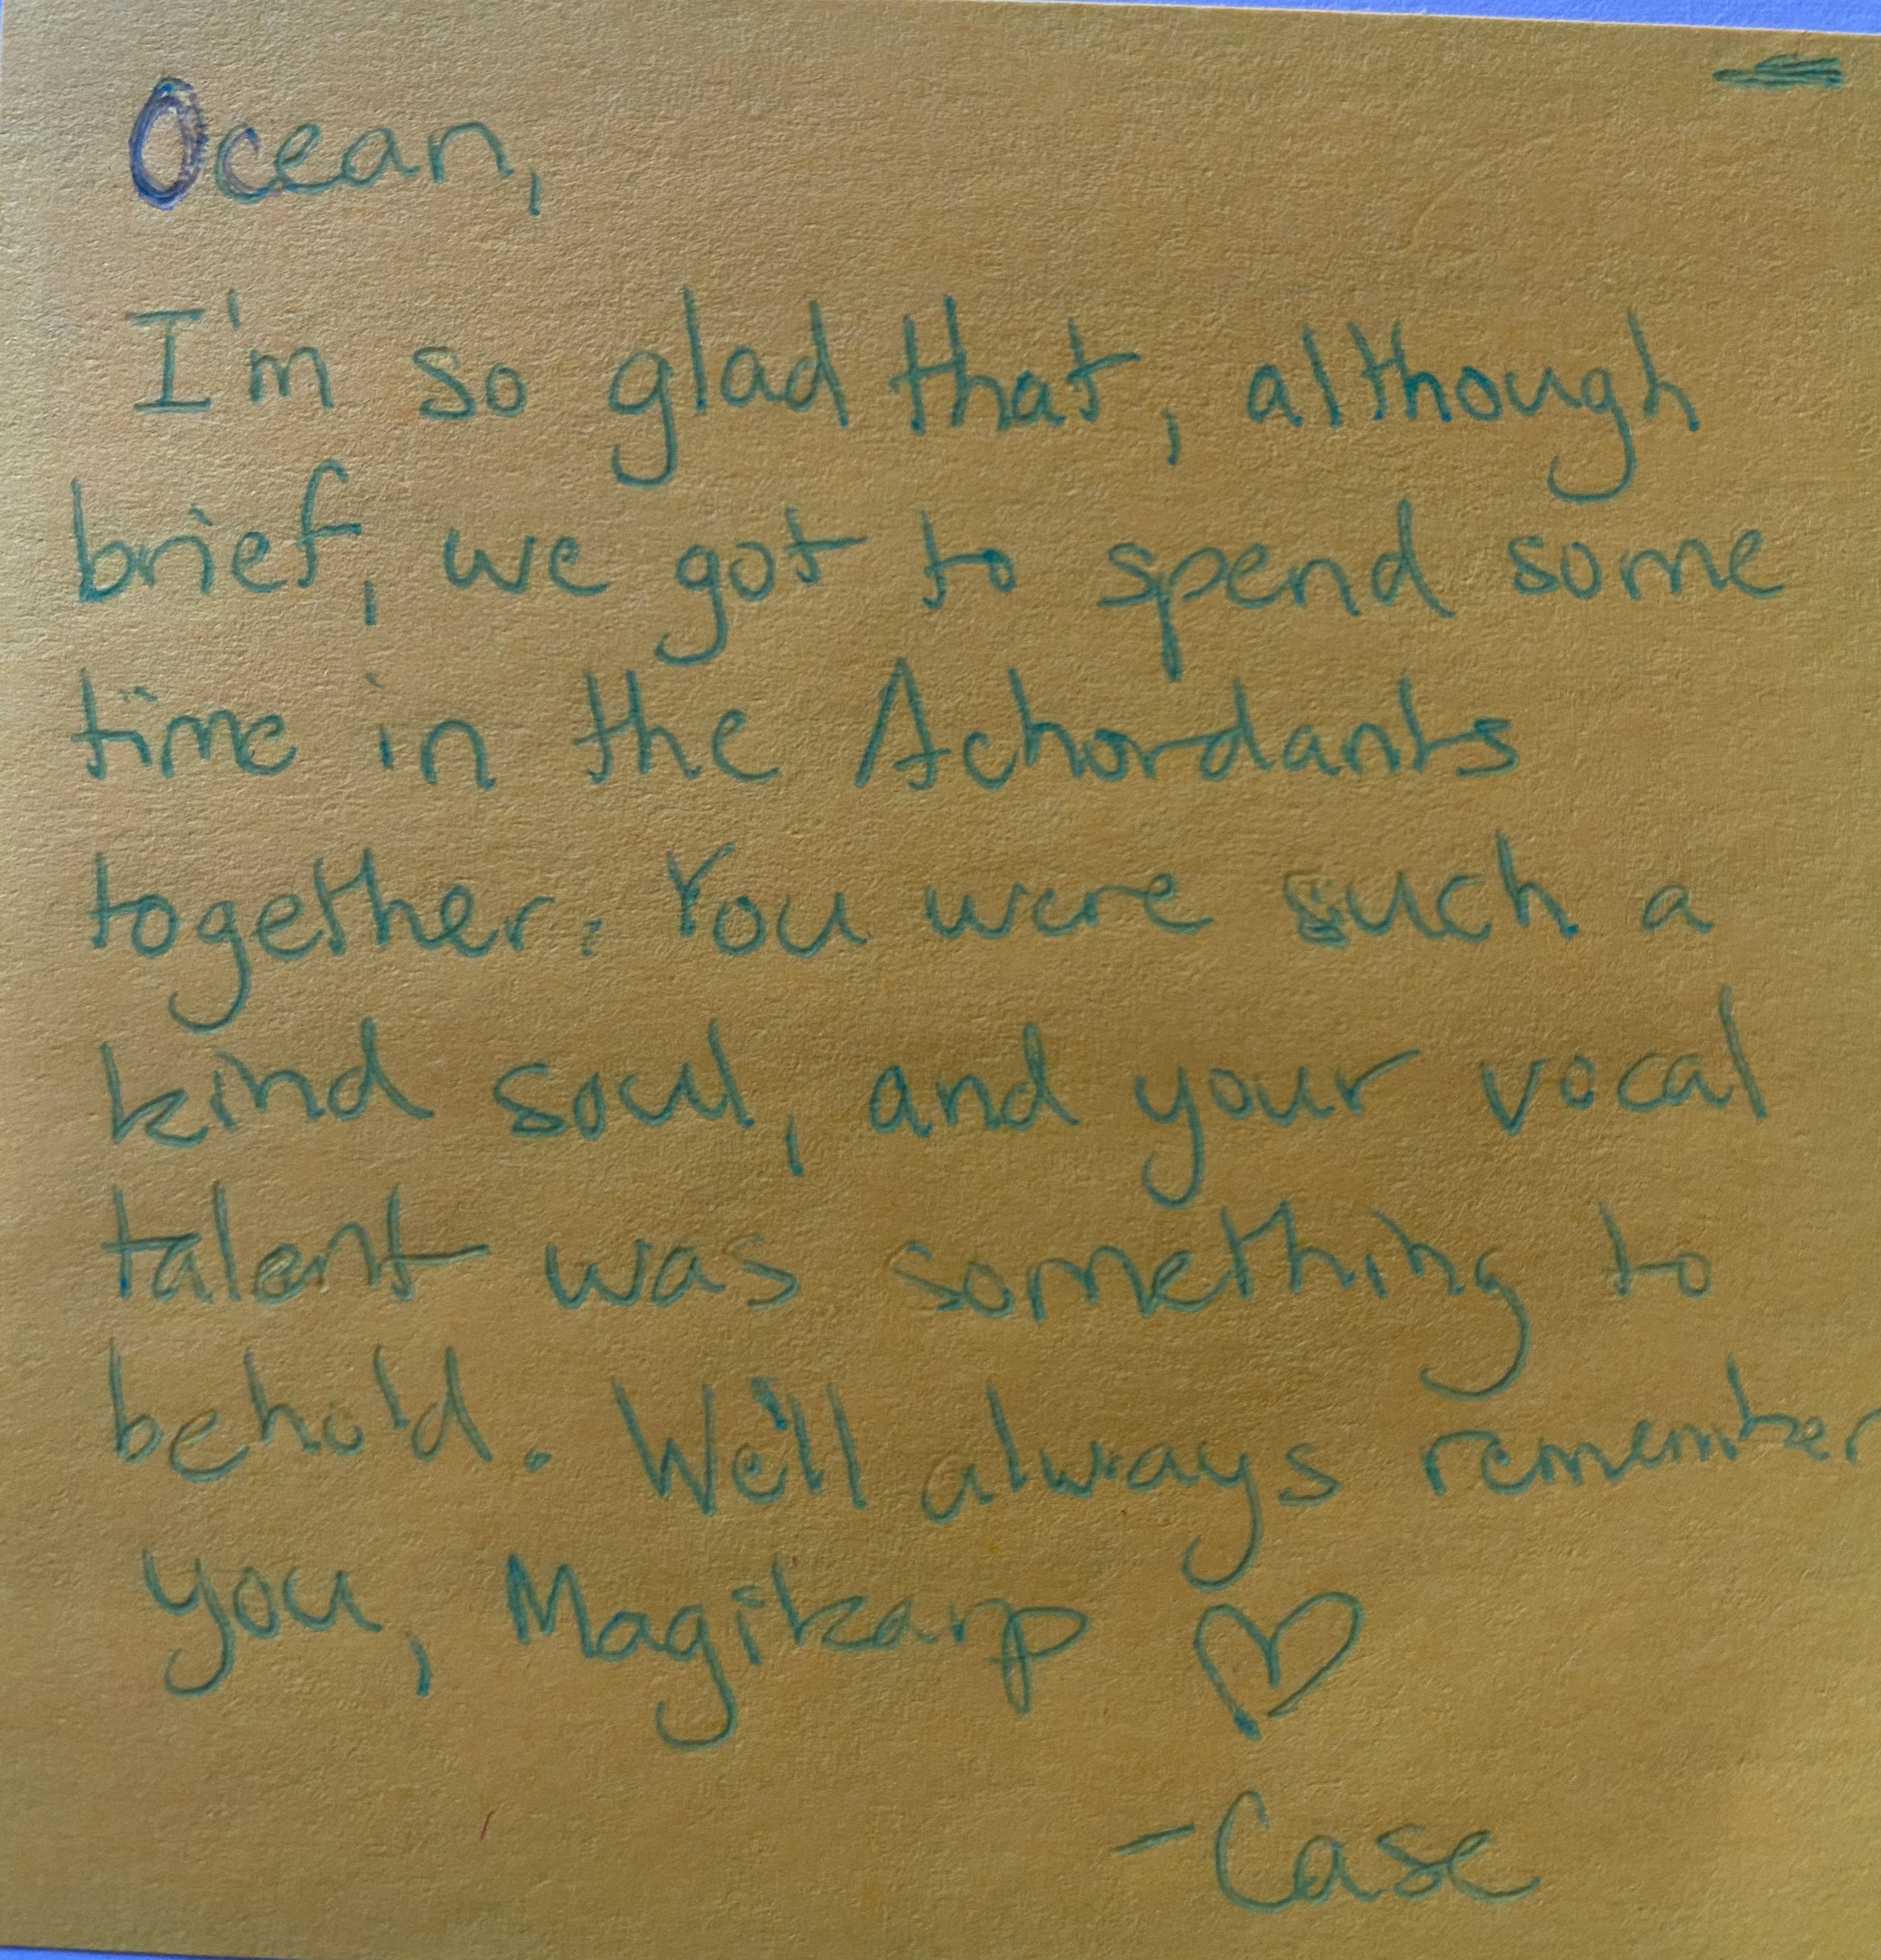 Ocean,
I'm so glad that, although
brief, we got to spend some
time in the Achordants
together. You were such a
kind soul, and your vocal
talent was something to
behold. We'll always remember
you, Magikarp ♡
-Case